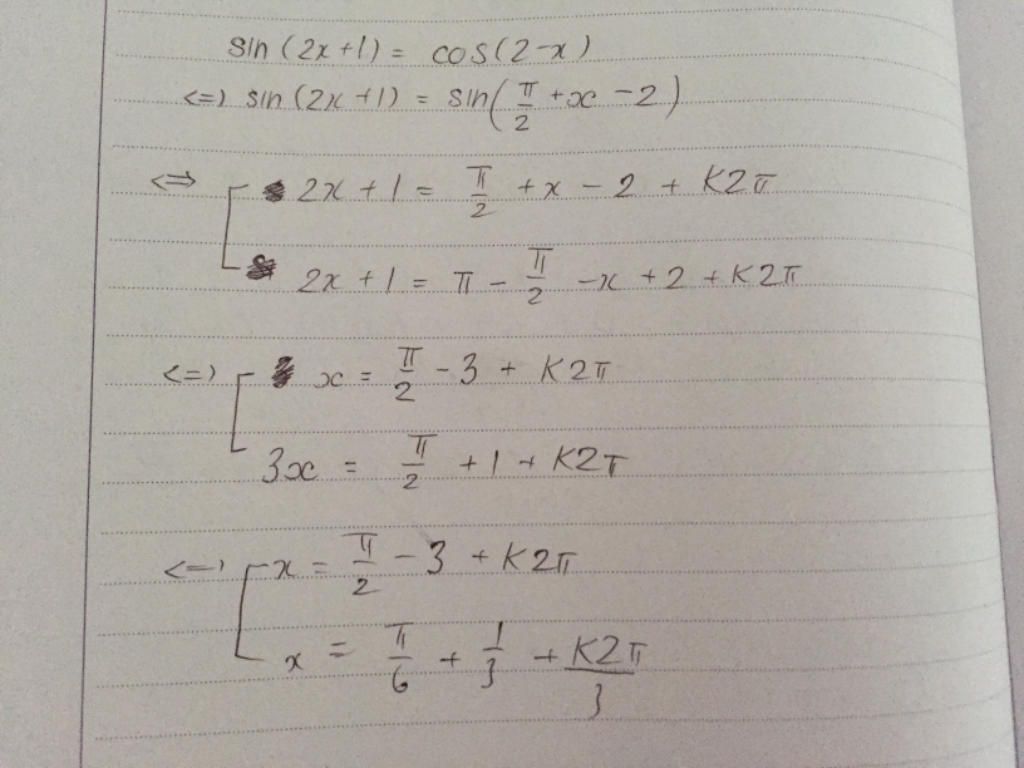 sin(2x+1) = cos(2-x)
<=> sin(2x+1) = sin(π/2 +x -2)
<=> [ 2x+1 = π/2 +x - 2 + K2π
2x+1 = π - π/2 -x +2 +K2π
<=> [ x = π/2 -3 + K2π
3x = π/2 +1 + K2π
<=> [ x = π/2 -3 + K2π
x = π/6 + 1/3 + K2π/3